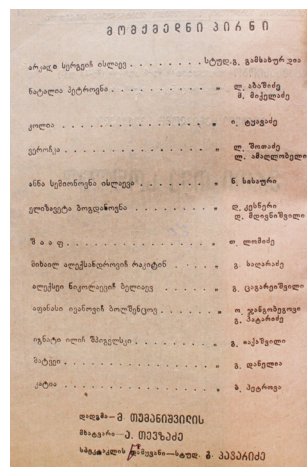 მოქმედნი პირნი
არკადი სერგეიჩ ისლაევ . . . . . . . . სტუდ. გ. გამსახურდია
ნატალია პეტროვნა . . . . . . . . . „ ლ. აბაშიძე
მ. მიქელაძე
კოლია . . . . . . . . . . . . . „ ი. ტყაბაძე
ვეროჩკა . . . . . . . . . . . . „ ლ. შოთაძე
ლ. ამაღლობელი
ანნა სემიონოვნა ისლაევა . . . . . . . „ ნ. სასაური
ელიზავეტა ბოგდანოვნა . . . . . . . „ დ. კესნერი
დ. მდივნიშვილი
შააფ . . . . . . . . . . . . . „ თ. ლომიძე
მიხაილ ალექსანდროვიჩ რაკიტინ . . . . . „ გ. საღარაძე
ალექსეი ნიკოლაევიჩ ბელიაევ . . . . . „ გ. ცაგარეიშვილი
აფანასი ივანოვიჩ ბოლშენცოვ . . . . . „ ო. ჯანგობეგოვი
გ. პატარიძე
იგნატი ილიჩ შპიგელსკი . . . . . . „ გ.
მატვეი . . . . . . . . . . . . „ გ. დანელია
კატია . . . . . . . . . . . . . „ მ. პეტროვა
დადგმა—მ. თუმანიშვილის
მხატვარი—პ. თევზაძე
სპექტაკლის წამყვანი—სტუდ. გ. კავარიძე